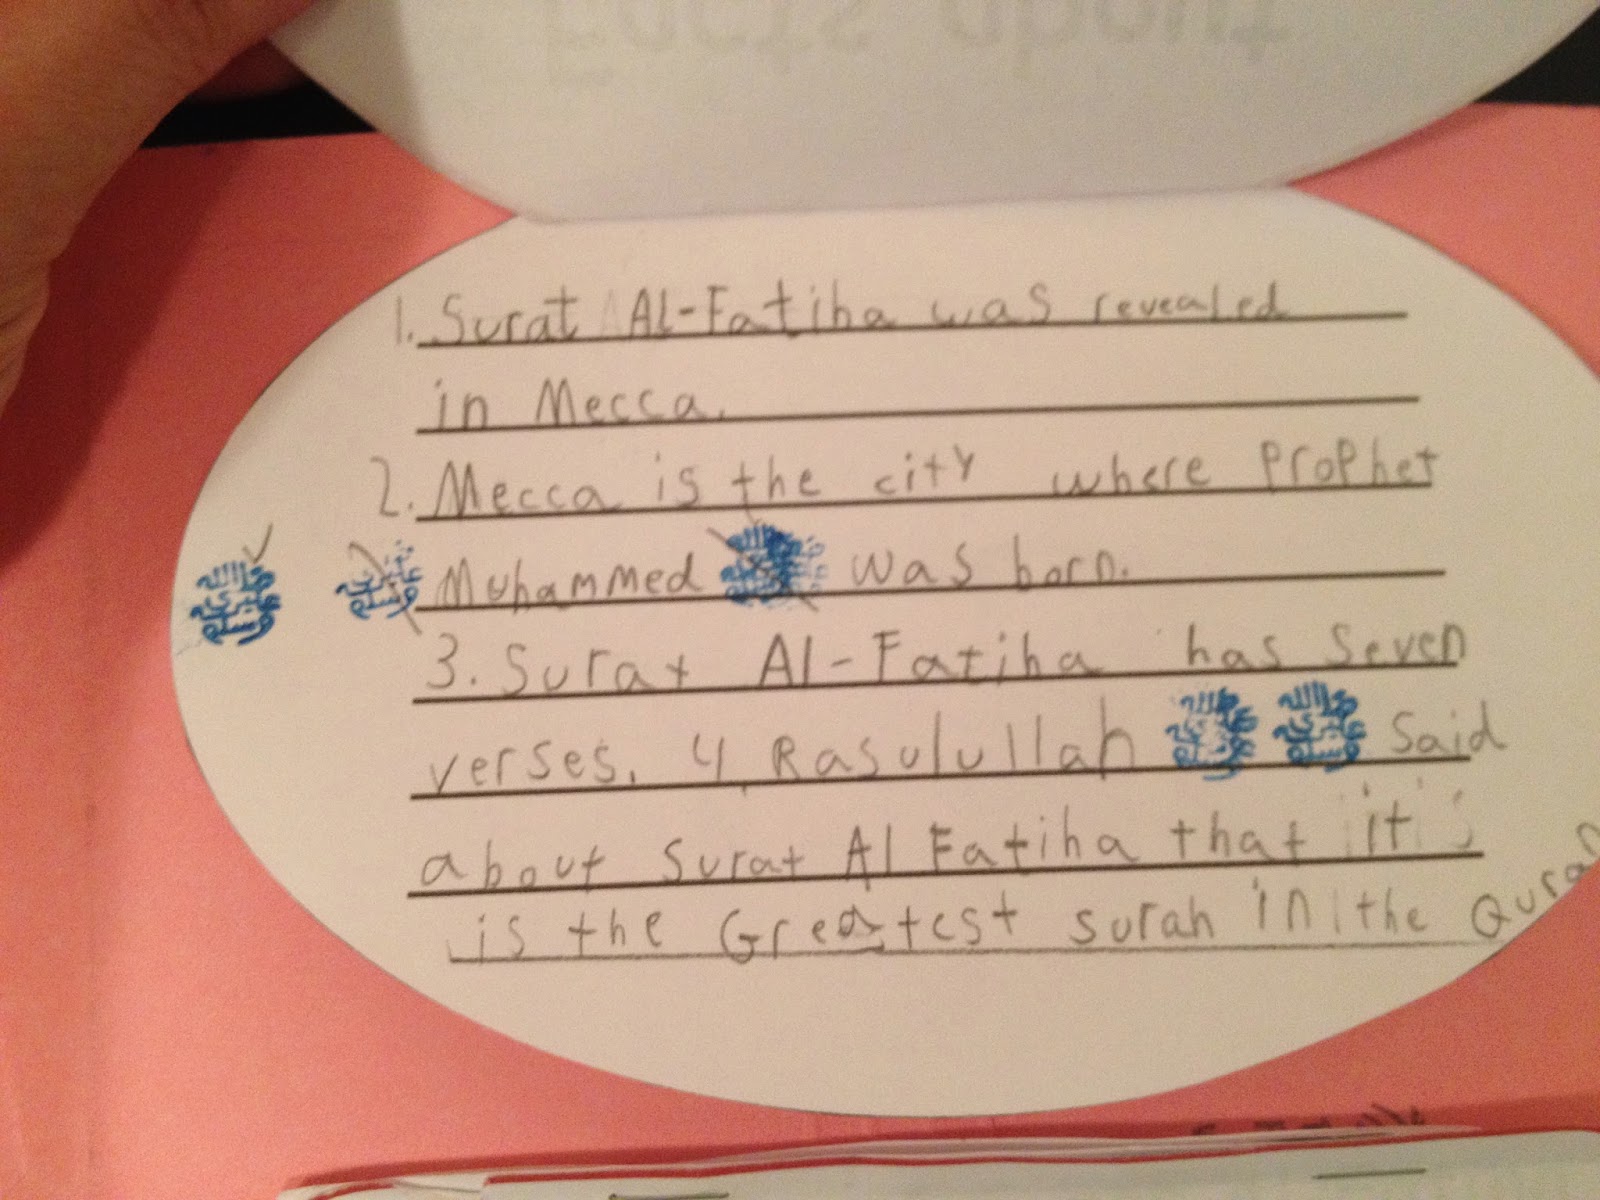 facts about
1. Surat Al-Fatiha was revealed
in Mecca.
2. Mecca is the city where Prophet
Muhammed صلى الله عليه وسلم was born.
3. Surat Al-Fatiha has seven
verses. 4 Rasulullah صلى الله عليه وسلم صلى الله عليه وسلم said
about Surat Al Fatiha that it
is the Greatest surah in the Quran